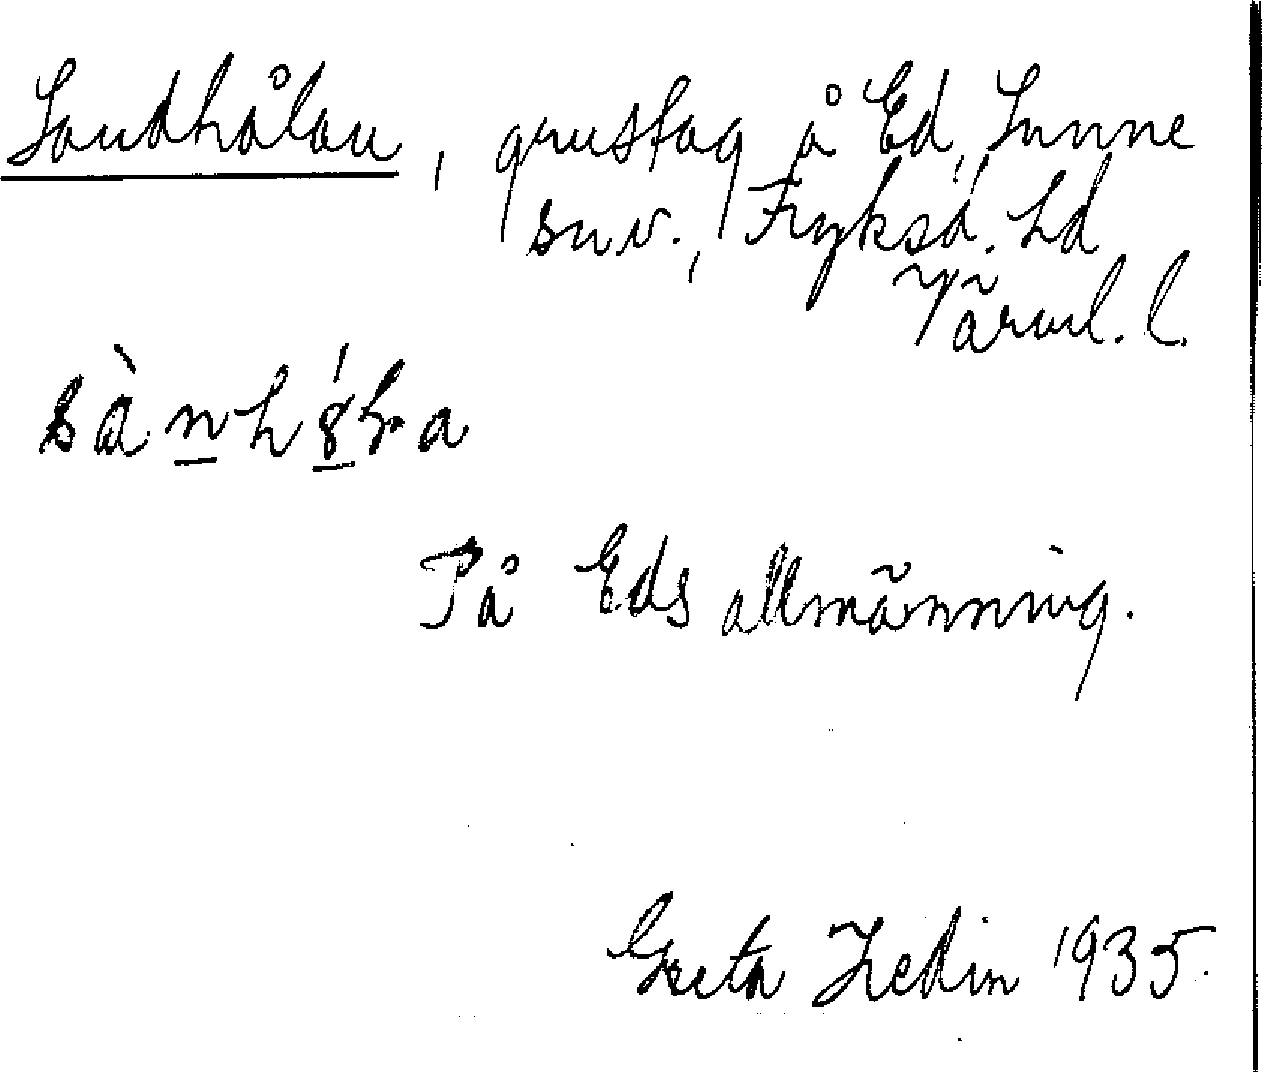 Sandhålan, grustag å Ed, Sunne
sn.v., Fryksd. hd
Värml. l.
På Eds allmänning.
Greta Hedin 1935.